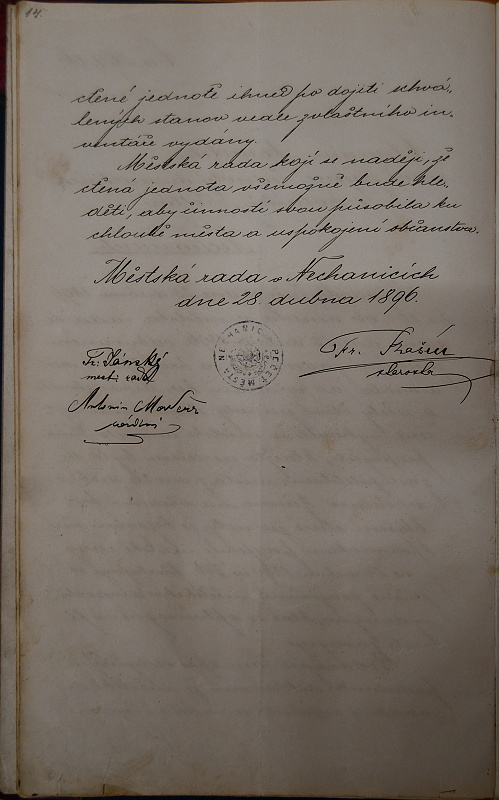 14.
ctěné jednotě ihned po dojití schvá-
lených stanov vedle zvláštního in-
ventáře vydány.
Městská rada kojí se nadějí, že
ctěná jednota všemožně bude hle-
děti, aby činností svou působila ku
chloubě města a uspokojení občanstva.
Městská rada v Nechanicích
dne 28. dubna 1896.
PEČEŤ MĚSTA NECHANIC
Fr.
starosta
Fr. Jánský
měst. rada
Antonín